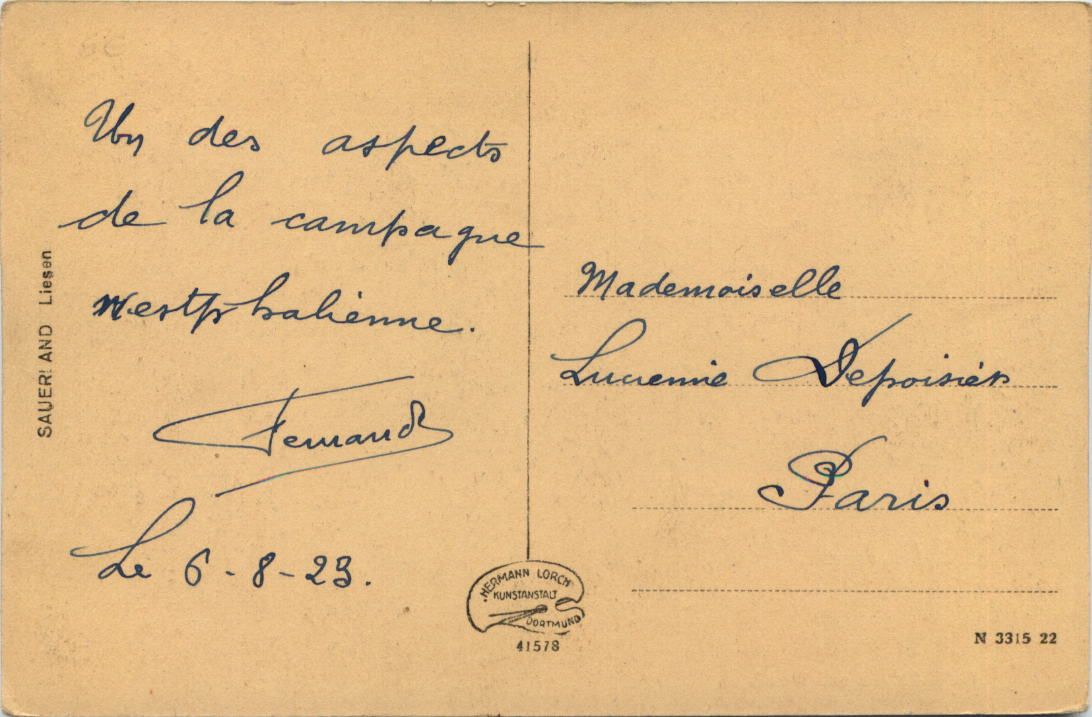 Un des aspects
de la campagne
Westphalienne.
Fernand
Le 6-8-23.
SAUERLAND Liesen
Mademoiselle
Lucienne Depoisier
Paris
HERMANN LORCH
KUNSTANSTALT
DORTMUND
41578
N 3315 22